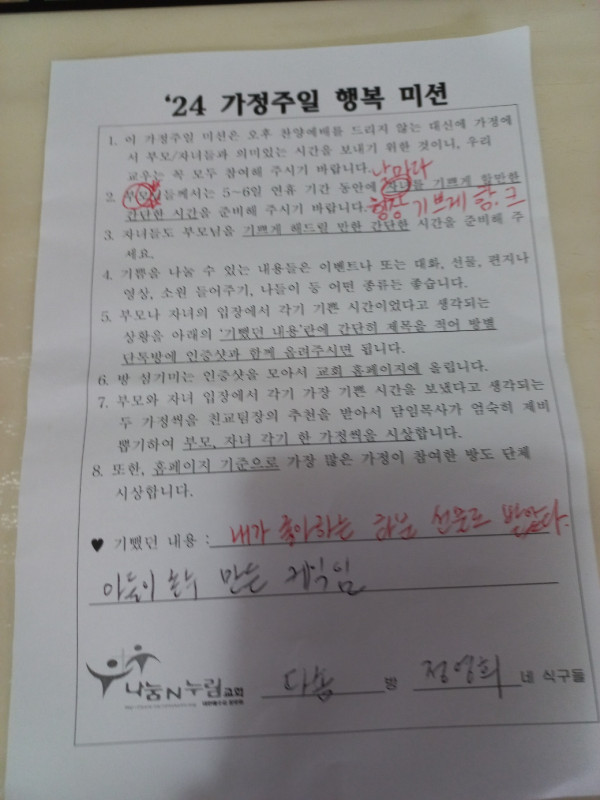 '24 가정주일 행복 미션
1. 이 가정주일 미션은 오후 찬양예배를 드리지 않는 대신에 가정에
서 부모/자녀들과 의미있는 시간을 보내기 위한 것이니, 우리
교우는 꼭 모두 참여해 주시기 바랍니다.
날마다
2. 부모님들께서는 5~6일 연휴 기간 동안에 자녀를 기쁘게 할만한
간단한 시간을 준비해 주시기 바랍니다. 항상 기쁘게 함.
3. 자녀들도 부모님을 기쁘게 해드릴 만한 간단한 시간을 준비해 주
세요.
4. 기쁨을 나눌 수 있는 내용들은 이벤트나 또는 대화, 선물, 편지나
영상, 소원 들어주기, 나들이 등 어떤 종류든 좋습니다.
5. 부모나 자녀의 입장에서 각기 기쁜 시간이었다고 생각되는
상황을 아래의 '기뻤던 내용'란에 간단히 제목을 적어 방별
단톡방에 인증샷과 함께 올려주시면 됩니다.
6. 방 섬기미는 인증샷을 모아서 교회 홈페이지에 올립니다.
7. 부모와 자녀 입장에서 각기 가장 기쁜 시간을 보냈다고 생각되는
두 가정씩을 친교팀장의 추천을 받아서 담임목사가 엄숙히 제비
뽑기하여 부모, 자녀 각기 한 가정씩을 시상합니다.
8. 또한, 홈페이지 기준으로 가장 많은 가정이 참여한 방도 단체
시상합니다.
♥ 기뻤던 내용 : 내가 좋아하는 화분 선물로 받았다.
아들이 손수 만든
나눔N누림교회 방 정영희 네 식구들